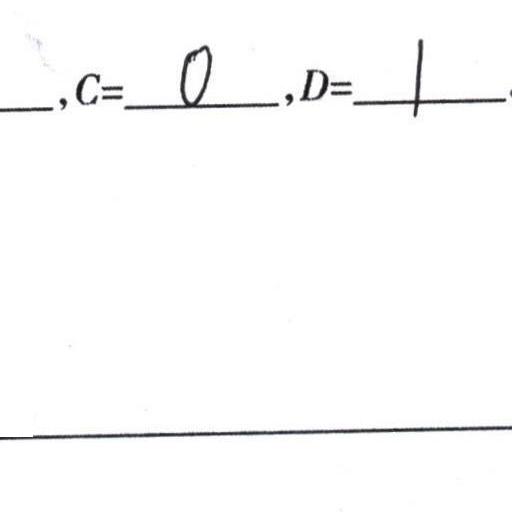 , C= 0 , D= 1